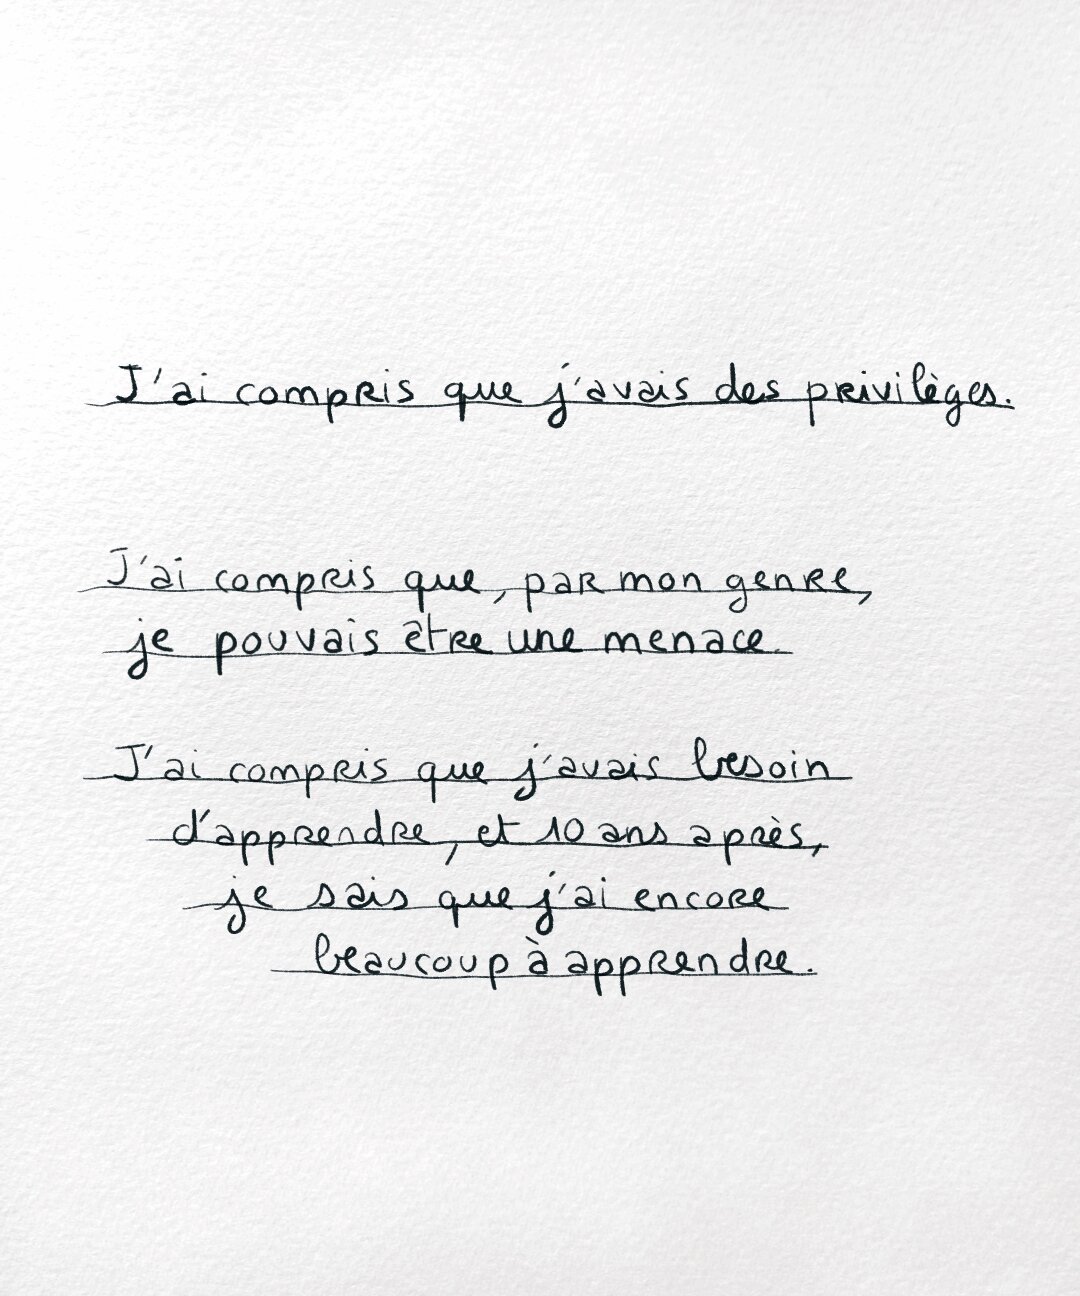 J'ai compris que j'avais des privilèges.
J'ai compris que, par mon genre,
je pouvais être une menace.
J'ai compris que j'avais besoin
d'apprendre, et 10 ans après,
je sais que j'ai encore
beaucoup à apprendre.